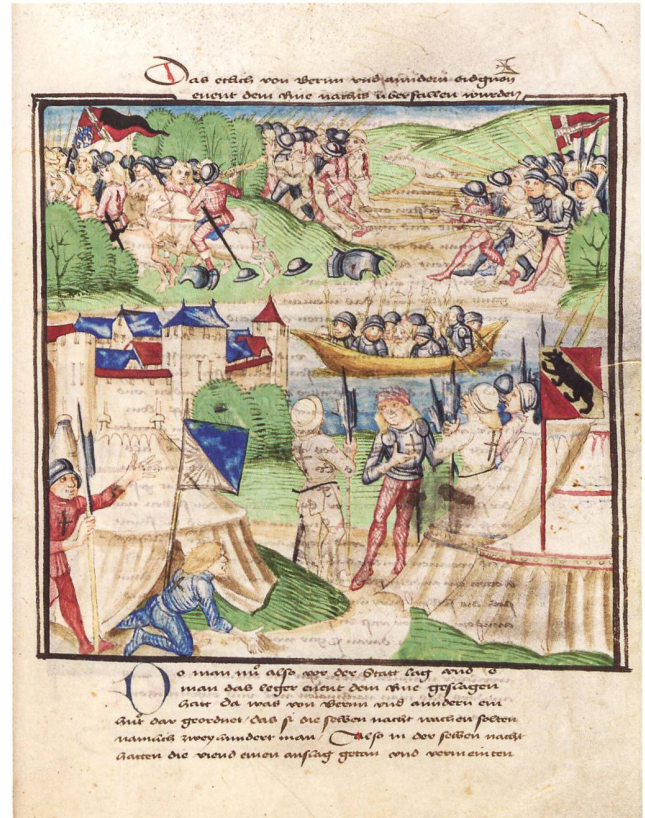 Das etlich von Bernn und anndern eidgnon
enent dem Rine nachts uberfallen wurden
Do man nů also vor der Statt lag und
man das leger enent dem Rine geslagen
hatt da was von Bernn und anndern ein
hůt dar geordnet das si die selben nacht wachen solten
namlich zweyhundert man Also in der selben nacht
hatten die viend einen anslag getan und vermeinten